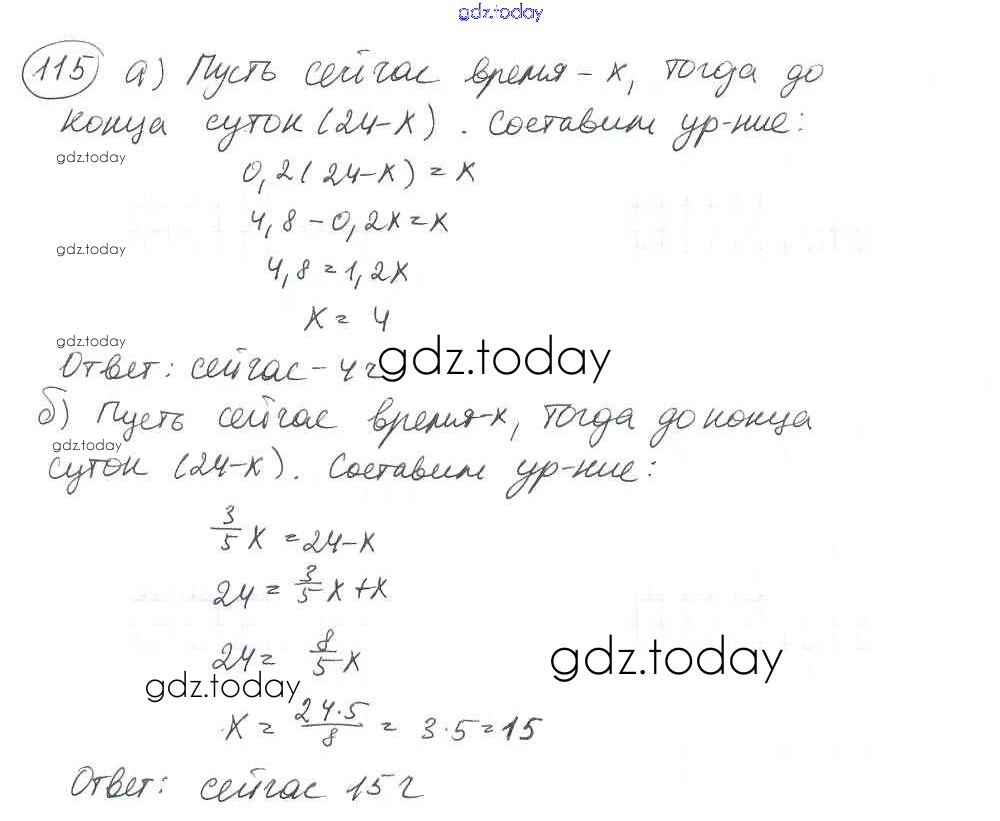 gdz.today
115 а) Пусть сейчас время - x, тогда до
конца суток (24-x). Составим ур-ние:
gdz.today
0,2(24-x) = x
4,8-0,2x=x
gdz.today
4,8=1,2x
x = 4
gdz.today
Ответ: сейчас - 4г
gdz.today
б) Пусть сейчас время-x, тогда до конца
gdz.today
суток (24-x). Составим ур-ние:
3/5 x = 24-x
24 = 3/5 x + x
24 = 8/5 x
gdz.today
gdz.today
x = 24·5/8 = 3·5=15
Ответ: сейчас 15 г